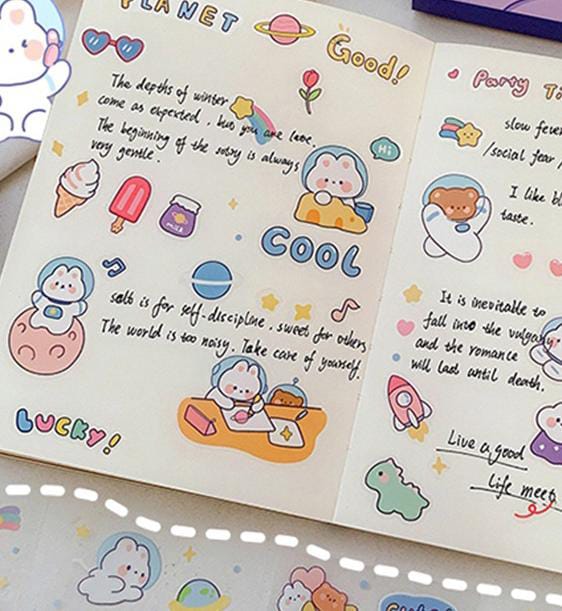 PLANET
Good!
The depths of winter
come as expected, but you are late.
The beginning of the sotry is always
very gentle.
Hi
MILK
COOL
salt is for self-discipline, sweet for others
The world is too noisy. Take care of yourself.
LUCKY!
Party Ti
slow fever
/social fear /
I like bl
taste.
It is inevitable to
fall into the vulgary
and the romance
will last until death.
Live a good
life meet